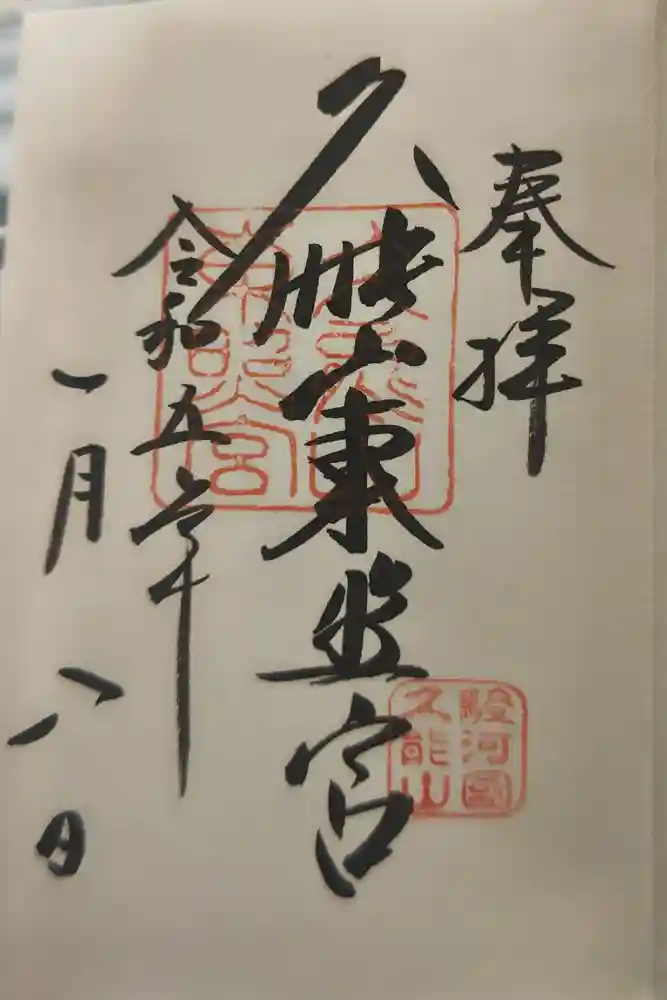 奉拝
久能山東照宮
令和五年
一月八日
久能山
東照宮
駿河國
久能山